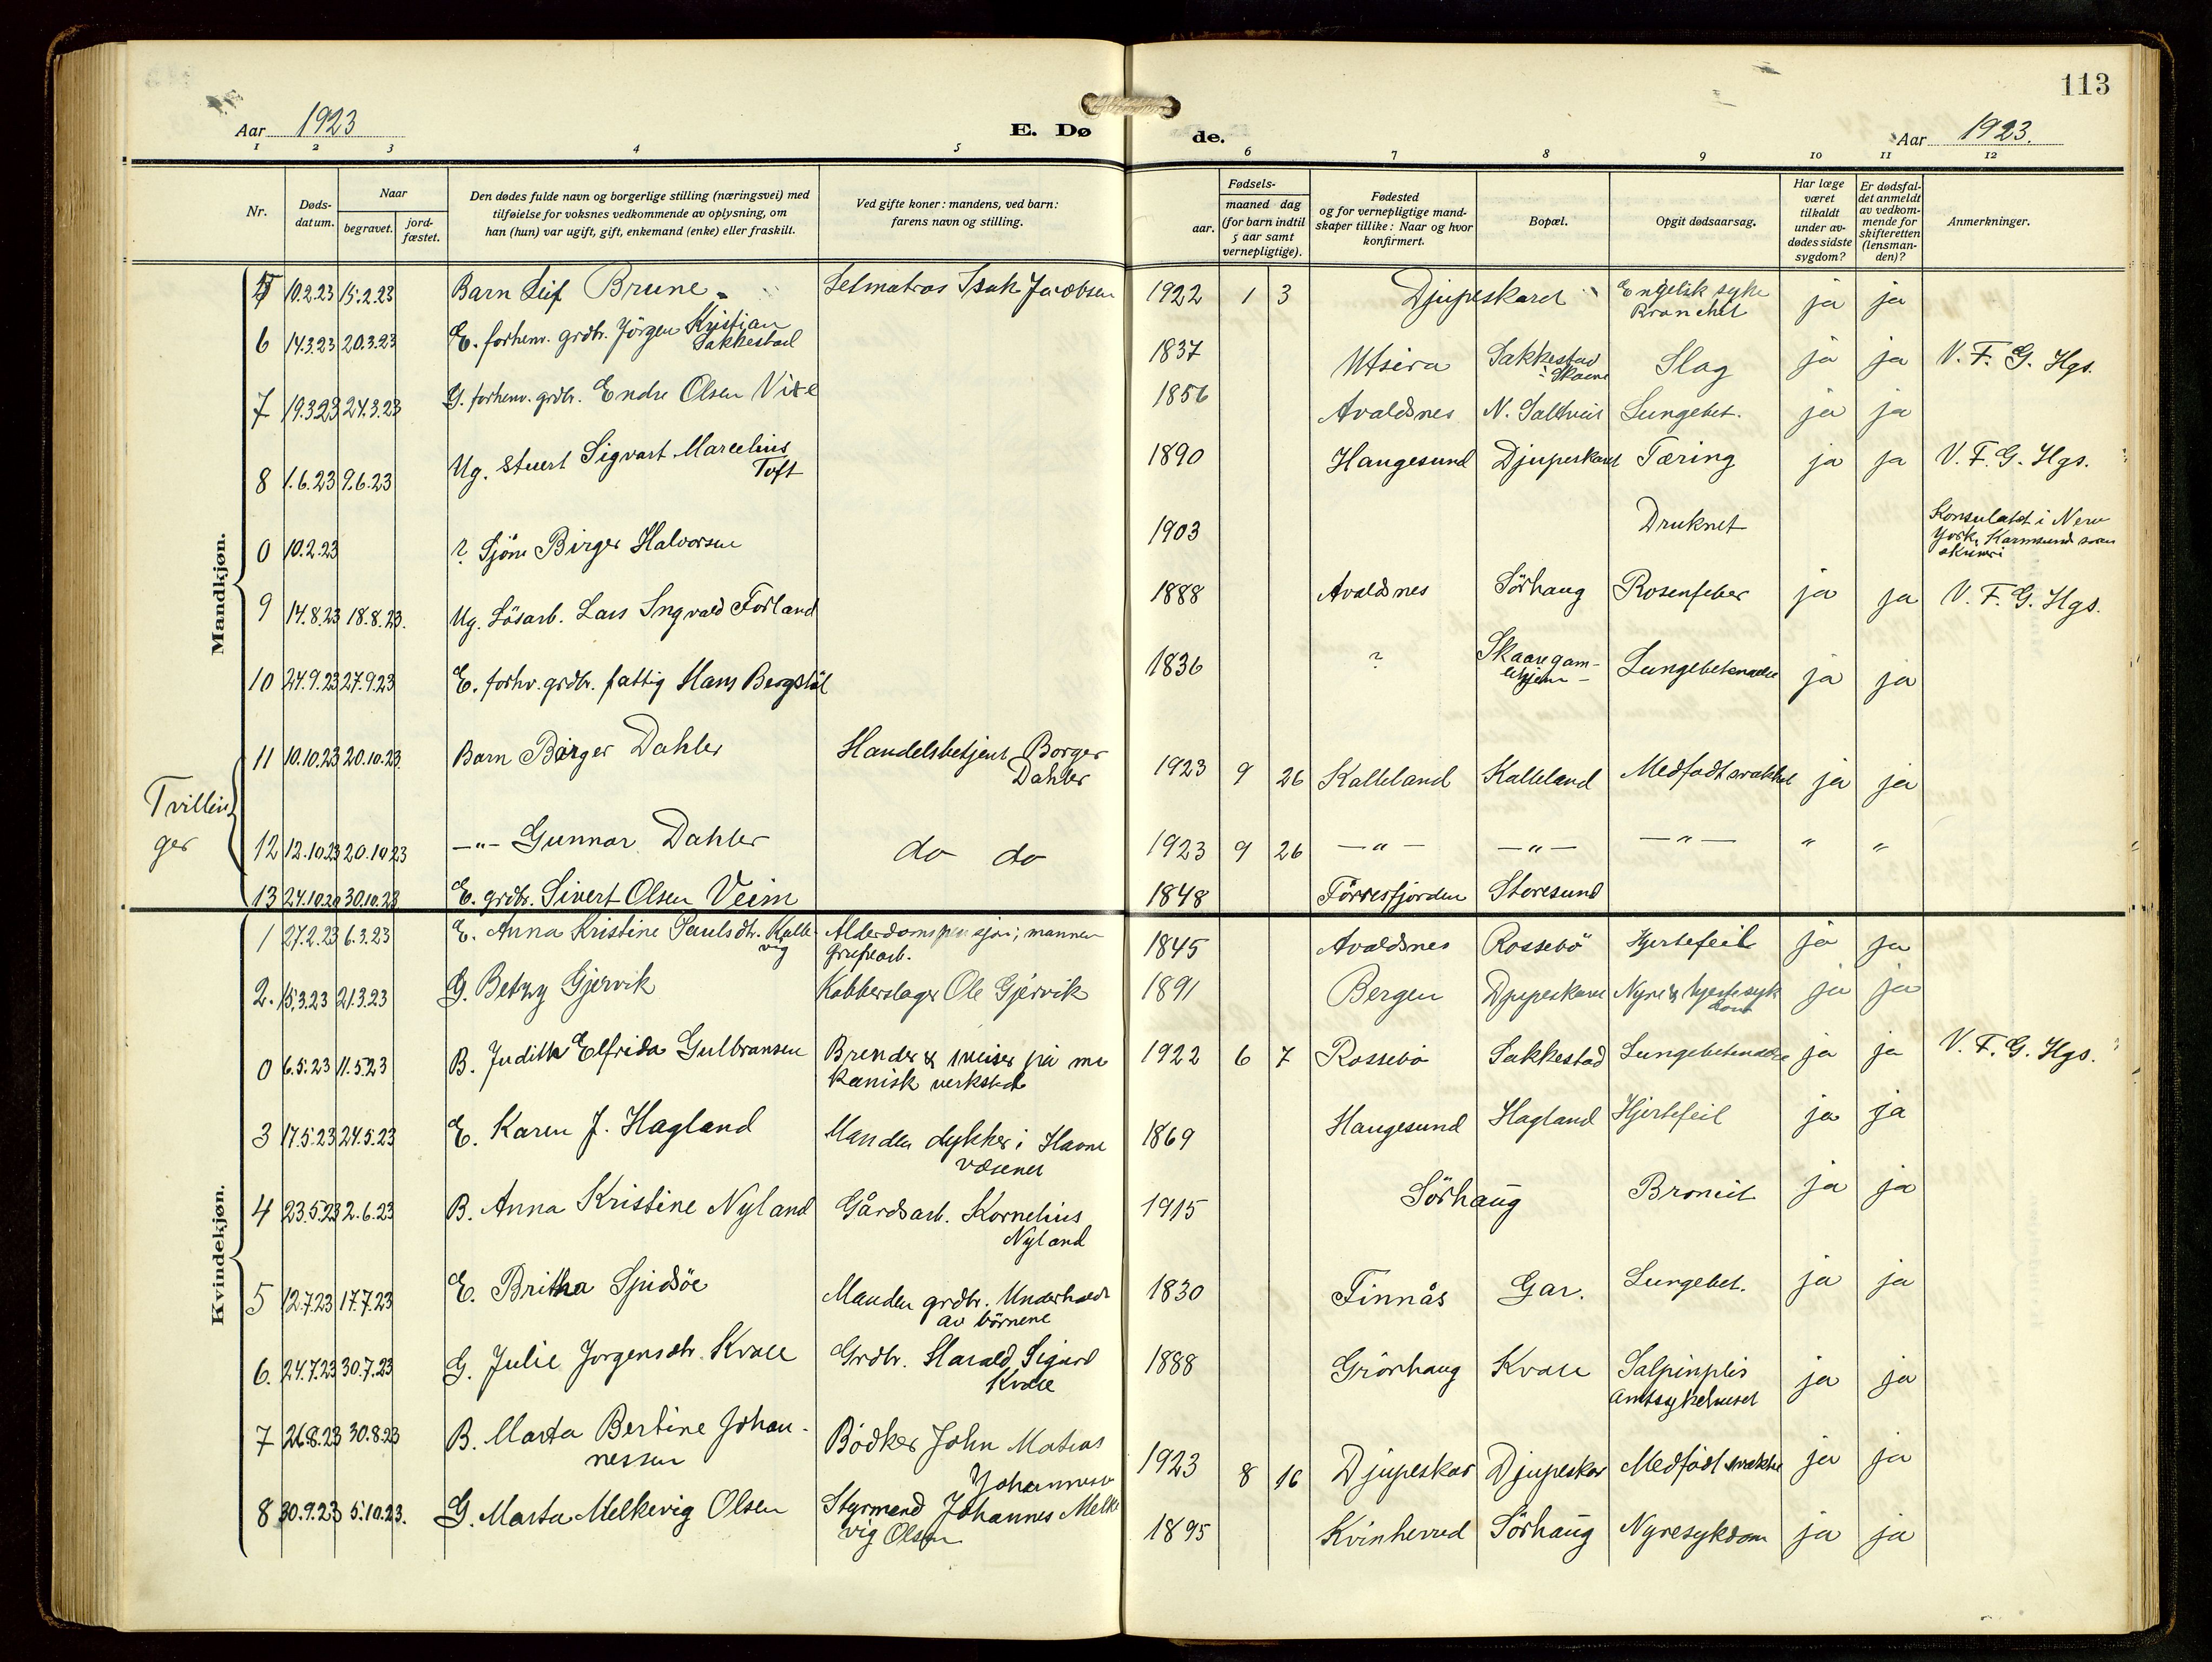 113
Aar 1923
E. Dø
de.
Aar 1923.
1 2 3 4 5 6 7 8 9 10 11 12
Nr.
Døds-datum.
Naar
begravet.
jord-fæstet.
Den dødes fulde navn og borgerlige stilling (næringsvei) med
tilføielse for voksnes vedkommende av oplysning, om
han (hun) var ugift, gift, enkemand (enke) eller fraskilt.
Ved gifte koner: mandens, ved barn:
farens navn og stilling.
aar.
Fødsels-
maaned dag
(for barn indtil
5 aar samt
vernepligtige).
Fødested
og for vernepligtige mand-
skaper tillike: Naar og hvor
konfirmert.
Bopæl.
Opgit dødsaarsag.
Har læge
været
tilkaldt
under av-
dødes sidste
sygdom?
Er dødsfal-
det anmeldt
av vedkom-
mende for
skifteretten
(lensman-
den)?
Anmerkninger.
Mandkjøn.
5 10.2.23 15.2.23 Barn Leif Brune Isak Jacobsen 1922 1 3 Djupeskard Engelsk syke ja ja
6 14.3.23 20.3.23 E. forhenv. grdbr. Jörgen Kristian
Sakkestad 1837 Utsira Sakkestad
i Skaare Slag ja ja V. F. G. Hgs.
7 19.3.23 24.3.23 G. forhenv. grdbr. Endre Olsen 1856 Avaldsnes N. Saltveit Lungebet. ja ja
8 1.6.23 9.6.23 Ug. Stuert Sigvart Marcelius
Toft 1890 Haugesund Djupeskard Tæring ja ja V. F. G. Hgs.
0 10.2.23 ? Sjöm Birger Halvorsen 1903 Druknet Konsulatet i New
York, Karmsund soren
skriveri
9 14.8.23 18.8.23. Ug. Lösarb. Lars Ingvald Forland 1888 Avaldsnes Sörhaug Rosenfeber ja ja V. F. G. Hgs.
10 24.9.23 27.9.23 E. forhv. grdbr. fattig Hans 1836 ? Skaare gam-
lehjem - Lungebetændelse ja ja
Tvillin
ger
11 10.10.23 20.10.23 Barn Birger Dahler Handelsbetjent Borger
Dahler 1923 9 26 Kalleland Kalleland Medfödt svakhet ja ja
12 12.10.23 20.10.23 —"— Gunnar Dahler do do 1923 9 26 —"— —"— —"— " "
13 24.10.23 30.10.23 E. grdbr. Sivert Olsen Veim 1848 Förresfjorden Storesund
Kvindekjøn.
1 27.2.23 6.3.23 E. Anna Kristine Paulsdtr. Kalle-
vig Alderdomspensjon; mannen
1845 Avaldsnes Rossebö Hjertefeil ja ja
2. 15.3.23 21.3.23 G. Betzy Gjervik Kobberslager Ole Gjervik 1891 Bergen Djupeskard Nyre & hjertesyk
dom ja ja
0 6.5.23 11.5.23 B. Judith Elfrida Gulbransen Brender & sveiser på me
kanisk verksted 1922 6 7 Rossebö Sakkestad Lungebetændelse ja ja V. F. G. Hgs.
3 17.5.23 24.5.23 E. Karen J. Hagland Manden dykker i Havne
væsenet 1869 Haugesund Hagland Hjertefeil ja ja
4 23.5.23 2.6.23 B. Anna Kristine Nyland Gårdsarb. Kornelius
Nyland 1915 Sörhaug ja ja
5 12.7.23 17.7.23 E. Britha Manden grdbr. Underholdt
av börnene 1830 Finnås Gar. Lungebet. ja ja
6. 24.7.23 30.7.23 G. Julie Jorgensdtr. Kvale Grdbr. Harald Sigurd
Kvale 1888 Grörhaug Kvale
Amtssykehuset ja ja
7 26.8.23 30.8.23 B. Marta Bertine Johan-
nessen Bödker John Matias
Johannesen 1923 8 16 Djupeskar Djupeskar Medfödt svakhet ja ja
8 30.9.23 5.10.23. G. Marta Melkevig Olsen Styrmand Johannes Melke
vig Olsen 1895 Kvinherred Sörhaug Nyresykdom ja ja